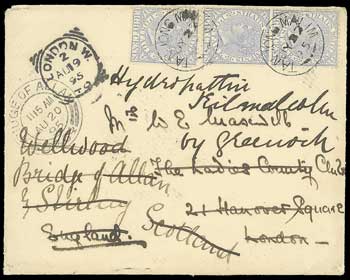 TANJONG MALIM
TANJONG MALIM
LONDON W.
2
AU 19
95
BRIDGE OF ALLAN
1115 AM
AU 20
95
Hydropathic
Kilmalcolm
by Greenock
M W E Maxwell
Wellwood
The Ladies County Club
Bridge of Allan
21 Hanover Square
& Stirling
Scotland
London
England